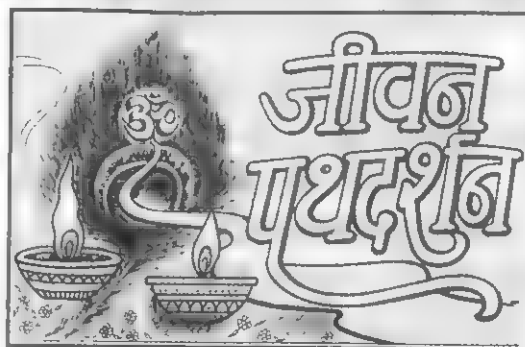 ॐ
जीवन
पथदर्शन